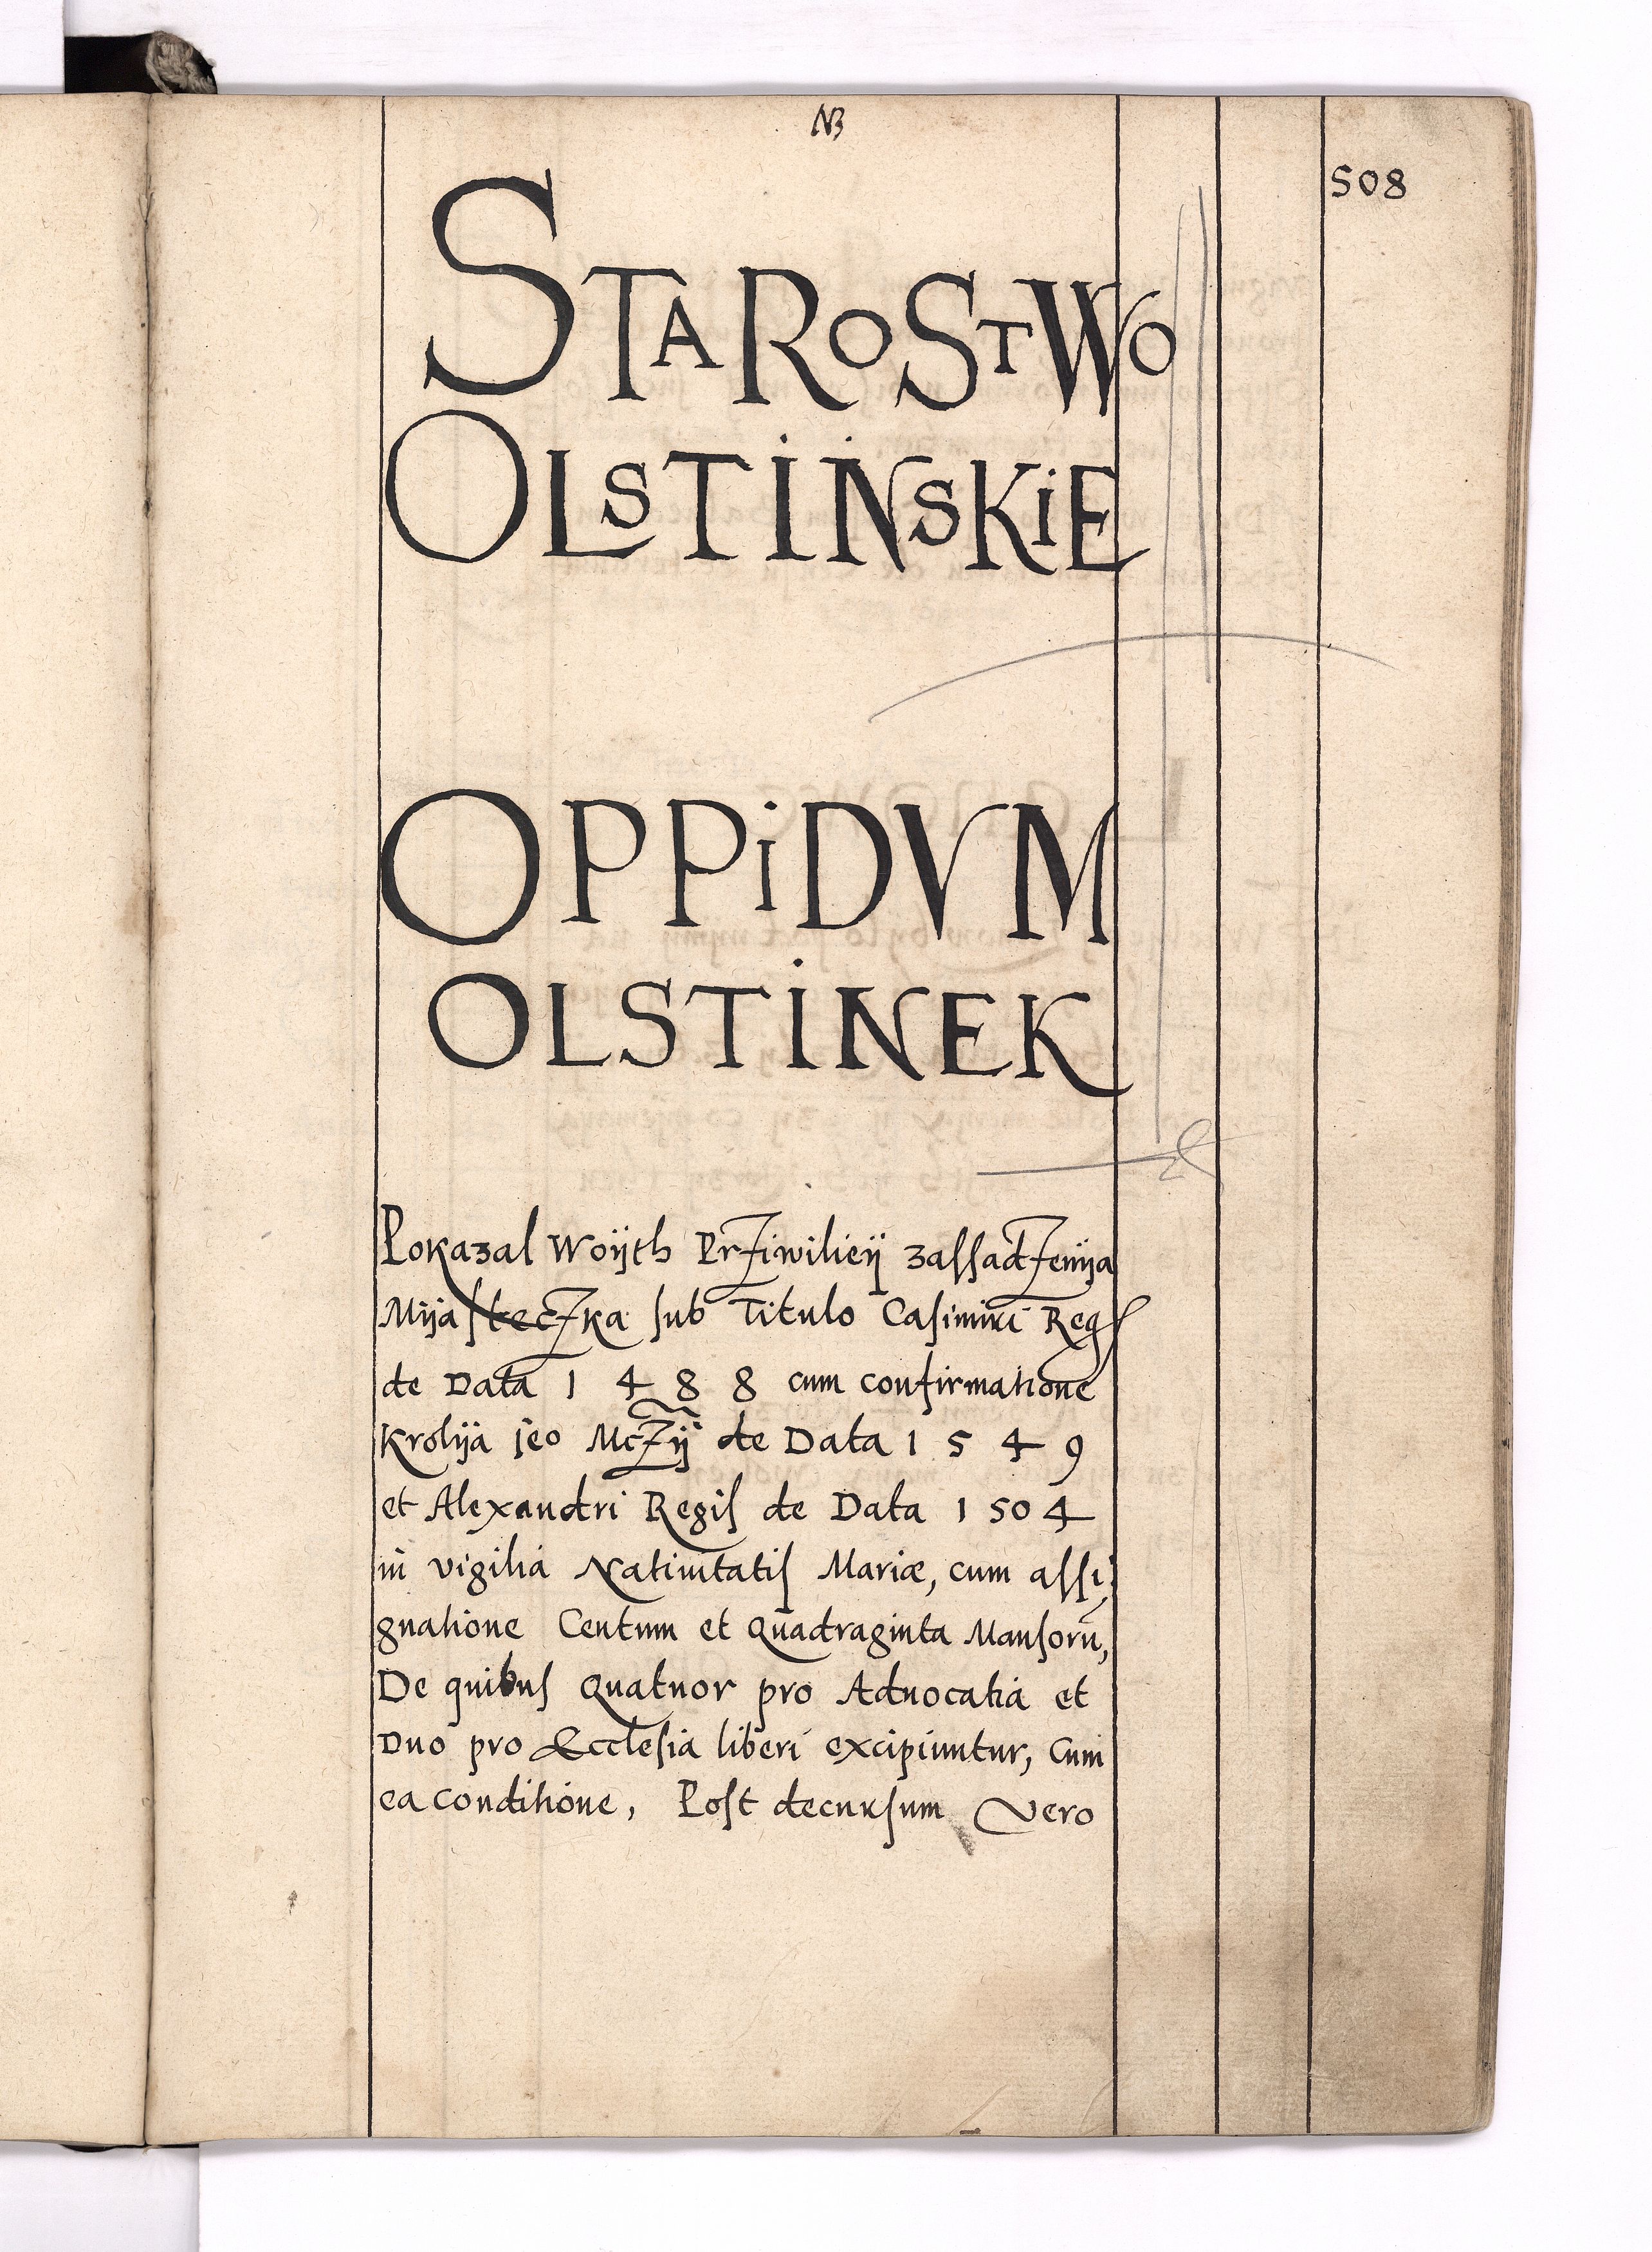 NB
508
STAROSTWO
OLSTINSKIE
OPPIDVM
OLSTINEK
Pokazal Woijth Prziwilieij zassadzenija
Mijasteczka sub Titulo Casimiri Regis
de Data 1 4 8 8 cum confirmatione
Krolija jeo Mczij de Data 1 5 4 9
et Alexandri Regis de Data 1 504
in vigilia Natiuitatis Mariæ, cum assi,
gnatione Centum et Quadraginta Mansorū,
De quibus Quatuor pro Aduocatia et
Duo pro Ecclesia liberi excipiuntur, Cum
ea conditione, Post decursum Vero